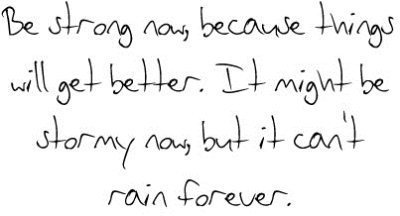 Be strong now, because things
will get better. It might be
stormy now, but it can't
rain forever.